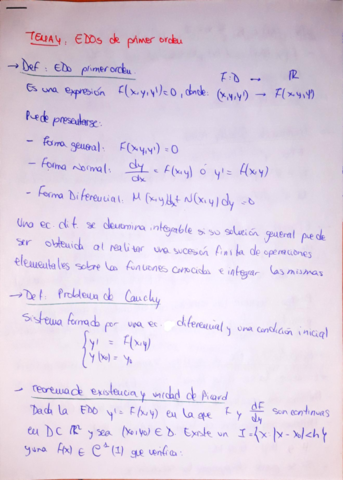 TEMA 4: EDOs de primer orden
→ Def: EDO primer orden: F:D → ℝ
Es una expresión F(x,y,y')=0, donde: (x,y,y') → F(x,y,y')
Puede presentarse:
- Forma general: F(x,y,y')=0
- Forma Normal: dy/dx = f(x,y) ó y' = f(x,y)
- Forma Diferencial: M(x,y)dx + N(x,y)dy = 0
Una ec. dif. se denomina integrable si su solución general puede
ser obtenida al realizar una sucesión finita de operaciones
elementales sobre las funciones conocidas e integrar las mismas
→ Def: Problema de Cauchy
Sistema formado por una ec. diferencial y una condición inicial
{ y' = F(x,y)
{ y(x0) = y0
→ Teorema de existencia y unidad de Picard
Dada la EDO y' = F(x,y) en la que F y dF/dy son continuas
en D⊂ℝ² y sea (x0,y0) ∈ D. Existe un I = {x |x-x0|<h}
y una f(x) ∈ C¹(I) que verifica: